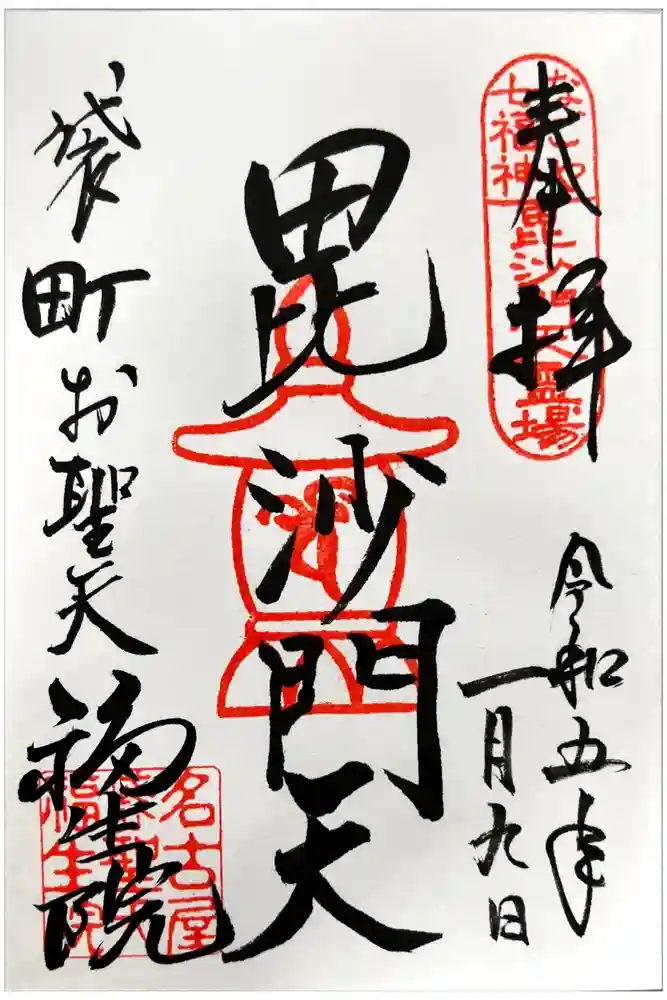 奉拝
なごや
七福神
毘沙門天霊場
令和五年
一月九日
毘沙門天
袋町お聖天
福生院
名古屋
福生院